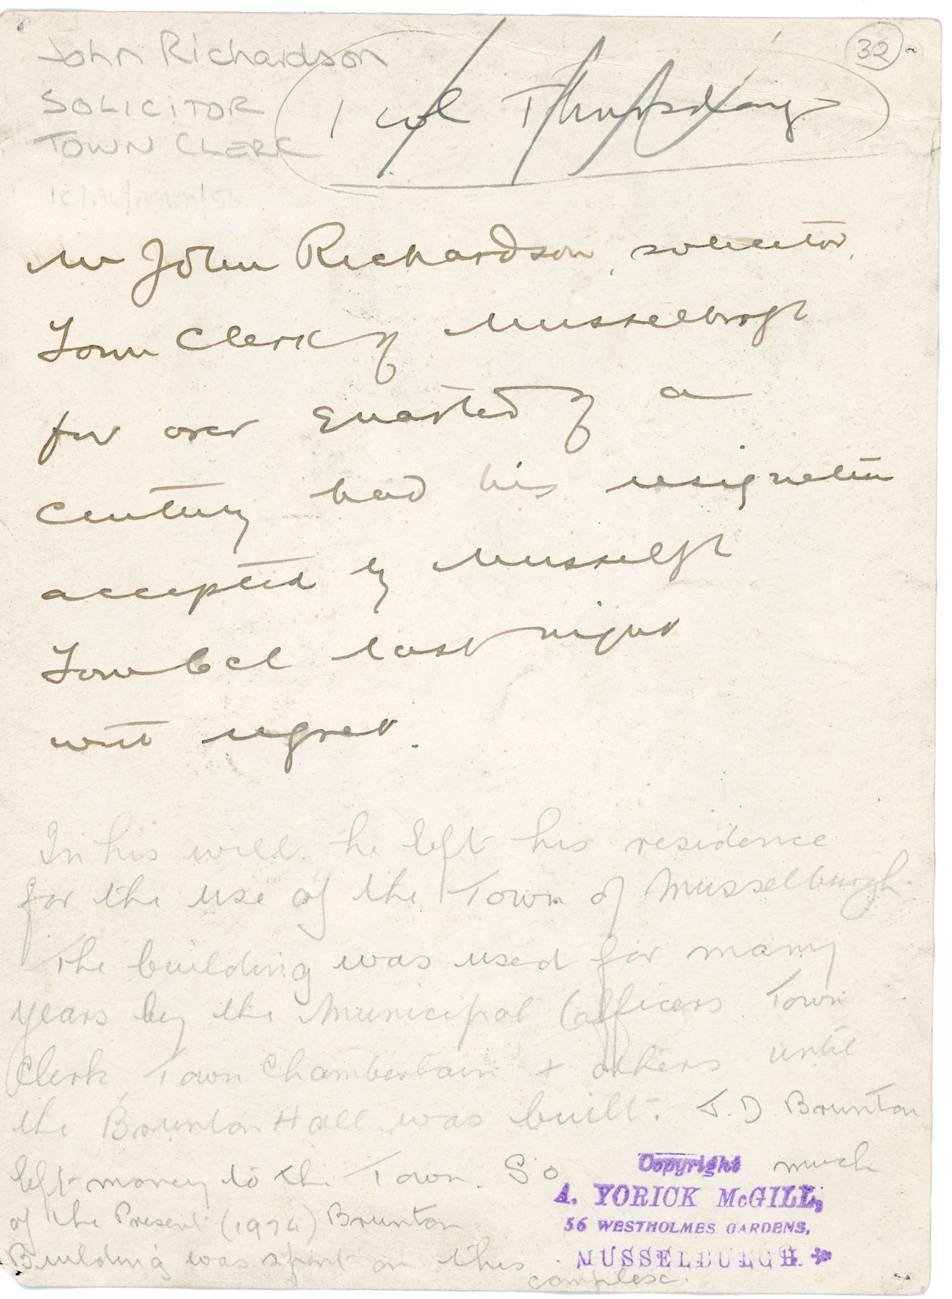 John Richardson
SOLICITOR
TOWN CLERK
32
1 col Thursday
Mr John Richardson, solicitor,
Town Clerk of Musselburgh
for over quarter of a
century had his resignation
accepted by Musselbgh
Town Ccl last night
with regret.
In his will he left his residence
for the use of the Town of Musselburgh.
The building was used for many
years by the Municipal Officers Town
Clerk Town Chamberlain + others until
the Brunton Hall was built. J.D Brunton
left money to the Town. So much
of the Present (1974) Brunton
Building was spent on this
complex.
Copyright
A. YORICK McGILL,
56 WESTHOLMES GARDENS,
MUSSELBURGH.